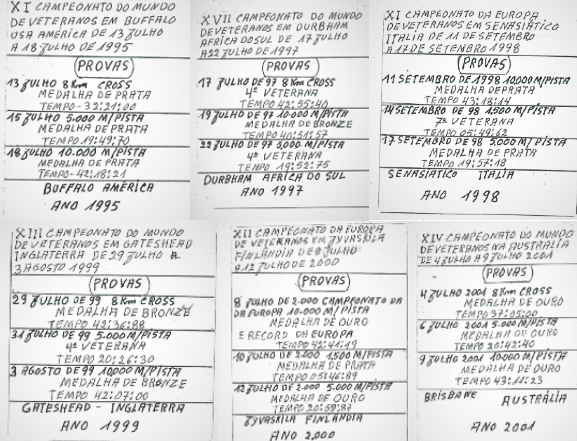 XI CAMPEONATO DO MUNDO
DE VETERANOS EM BUFFALO
USA AMÉRICA DE 13 JULHO
A 18 JULHO DE 1995
PROVAS
13 JULHO 8Km CROSS
MEDALHA DE PRATA
TEMPO-32:21:00
15 JULHO 5.000 M/PISTA
MEDALHA DE PRATA
TEMPO 19:49:70
18 JULHO 10.000 M/PISTA
MEDALHA DE PRATA
TEMPO-42:18:21
BUFFALO AMÉRICA
ANO 1995
XVII CAMPEONATO DO MUNDO
DE VETERANOS EM DURBHAM
AFRICA DO SUL DE 17 JULHO
A 22 JULHO DE 1997
PROVAS
17 JULHO DE 97 8Km CROSS
4ª VETERANA
TEMPO 42:55:40
19 JULHO DE 97 10.000 M/PISTA
MEDALHA DE BRONZE
TEMPO 40:51:57
22 JULHO DE 97 5,000 M/PISTA
4ª VETERANA
TEMPO 19:52:75
DURBHAM AFRICA DO SUL
ANO 1997
XI CAMPEONATO DA EUROPA
DE VETERANOS EM SENASIÁTICO
ITÁLIA DE 11 DE SETEMBRO
A 17 DE SETENBRO 1998
PROVAS
11 SETEMBRO DE 1998 10,000 M/PISTA
MEDALHA DE PRATA
TEMPO 43:18:14
14 SETEMBRO DE 98 1,500 M/PISTA
7ª VETERANA
TEMPO 05:49:62
17 SETEMBRO DE 98 5,000 M/PISTA
MEDALHA DE PRATA
TEMPO 19:57:18
SENASIÁTICO ITÁLIA
ANO 1998
XIII CAMPEONATO DO MUNDO
DE VETERANOS EM GATESHEAD
INGLATERRA DE 29 JULHO A
3 AGOSTO 1999
PROVAS
29 JULHO DE 99 8Km CROSS
MEDALHA DE BRONZE
TEMPO 42:36:88
31 JULHO DE 99 5.000 M/PISTA
4ª VETERANA
TEMPO 20:26:30
3 AGOSTO DE 99 10000 M/PISTA
MEDALHA DE BRONZE
TEMPO 42:07:00
GATESHEAD - INGLATERRA
ANO 1999
XII CAMPEONATO DA EUROPA
DE VETERANOS EM JYVASKILA
FINLÂNDIA DE 8 JULHO
A 12 JULHO DE 2000
PROVAS
8 JULHO DE 2.000 CAMPEONATO DA
DA EUROPA 10.000 M/PISTA
MEDALHA DE OURO
E RECORD DA EUROPA
TEMPO 42:41:19
10 JULHO DE 2.000 1,500 M/PISTA
MEDALHA DE PRATA
TEMPO 05:46:89
12 JULHO DE 2.000 5.000 M/PISTA
MEDALHA DE OURO
TEMPO 20:59:87
JYVASKILA FINLÂNDIA
ANO 2,000
XIV CAMPEONATO DO MUNDO
DE VETERANOS NA AUSTRÁLIA
DE 4 JULHO A 9 JULHO 2001
PROVAS
4 JULHO 2001 8Km CROSS
MEDALHA DE OURO
TEMPO 37:05:00
6 JULHO 2001 5.000 M/PISTA
MEDALHA DE OURO
TEMPO 20:42:40
9 JULHO 2001 10000 M/PISTA
MEDALHA DE OURO
TEMPO 43:11:23
BRISBANE AUSTRÁLIA
ANO 2001